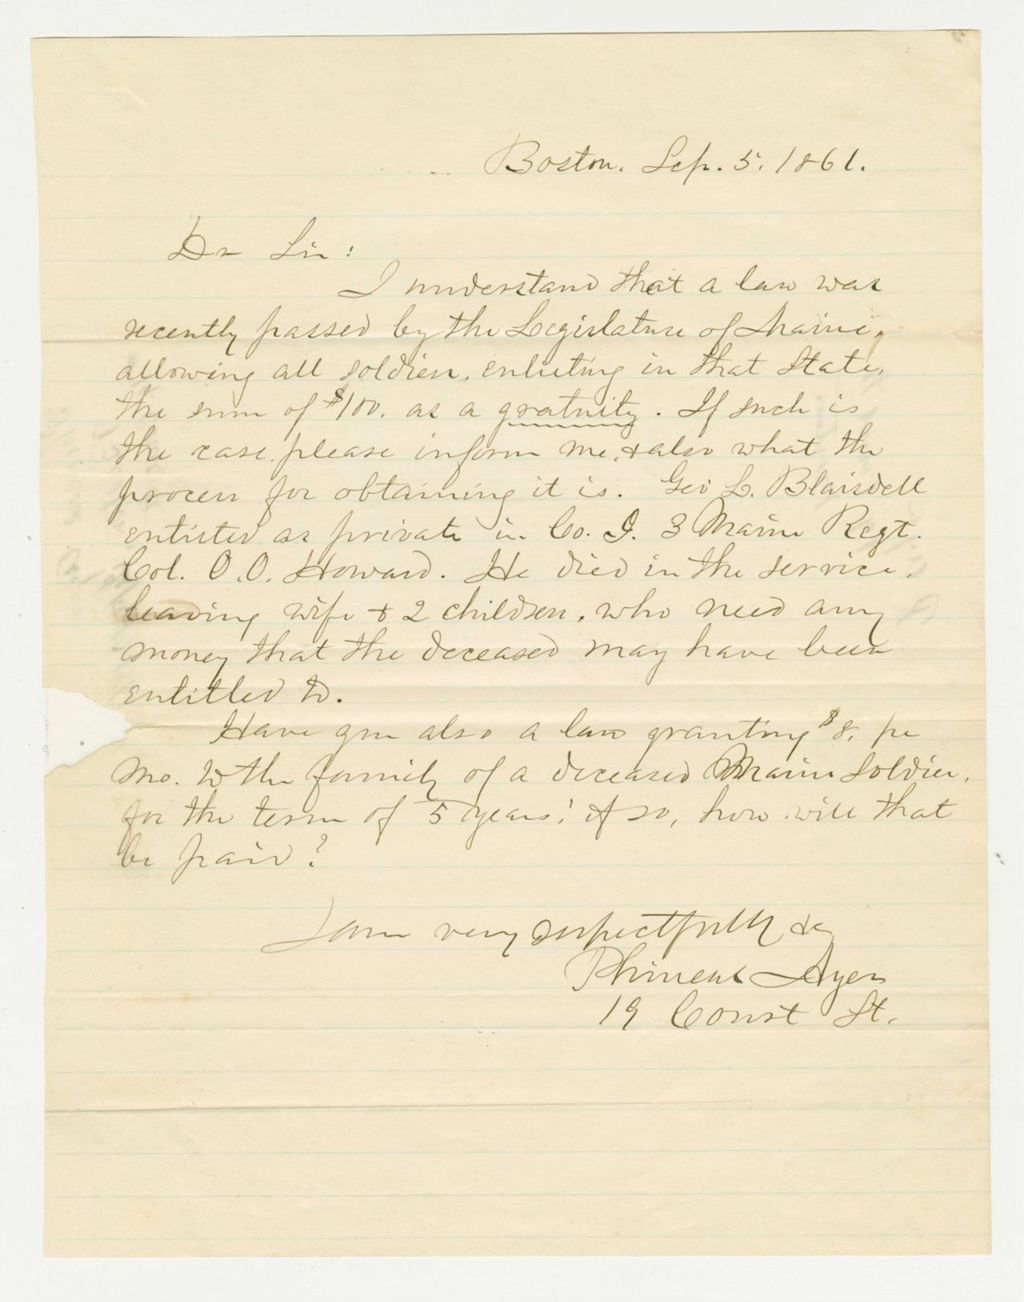 Boston. Sep. 5. 1861.
Dr Sir:
I understand that a law was
recently passed by the Legislature of Maine,
allowing all soldiers, enlisting in that State,
the sum of $100. as a gratuity. If such is
the case, please inform me, & also what the
process for obtaining it is. Geo L. Blaisdell
enlisted as private in Co. I. 3 Maine Regt.
Col. O. O. Howard. He died in the service,
leaving wife & 2 children, who need any
money that the deceased may have been
entitled to.
Have you also a law granting $8. per
mo. to the family of a deceased Maine Soldier,
for the term of 5 years? If so, how will that
be paid?
I am very respectfully &c
Phineas Ayer
19 Court St.